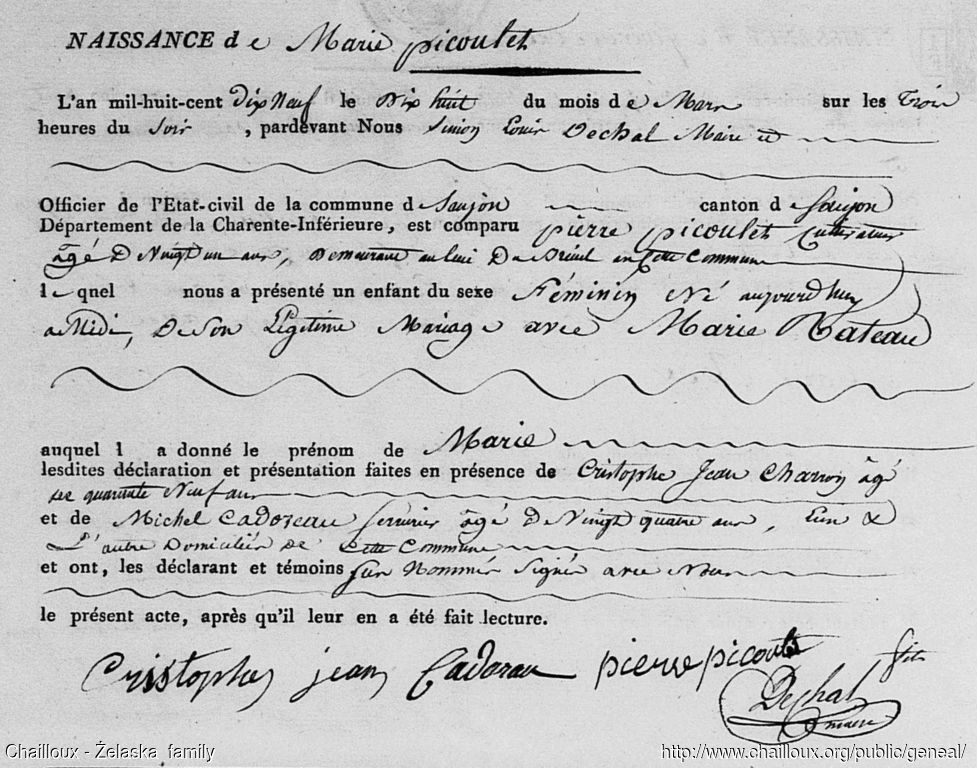 NAISSANCE de Marie picoulet
L'an mil-huit-cent Dix Neuf le Dix huit du mois de Mars sur les Trois
heures du Soir , pardevant Nous Simon Louis Dechal Maire et
Officier de l'Etat-civil de la commune d Saujon canton d Saujon
Département de la Charente-Inférieure, est comparu pierre picoulet Cultivateur
âgé De Vingt un ans, Demeurant au lieu De en Cette Commune
le quel nous a présenté un enfant du sexe Féminin Né aujourdhuy
a Midi, De Son Légitime Mariage avec Marie Rateau
auquel i a donné le prénom de Marie
lesdites déclaration et présentation faites en présence de Cristophe Jean Charron âgé
de quarante Neuf ans
et de Michel Cadoreau Serrurier âgé De Vingt quatre ans, L'un &
L'autre Domiciliés De Cette Commune
et ont, les déclarant et témoins Sus Nommés Signé avec Nous
le présent acte, après qu'il leur en a été fait lecture.
Cristophe jean Cadoreau pierre picoulet fils
Dechal
maire
Chailloux - Želaska family http://www.chailloux.org/public/geneal/